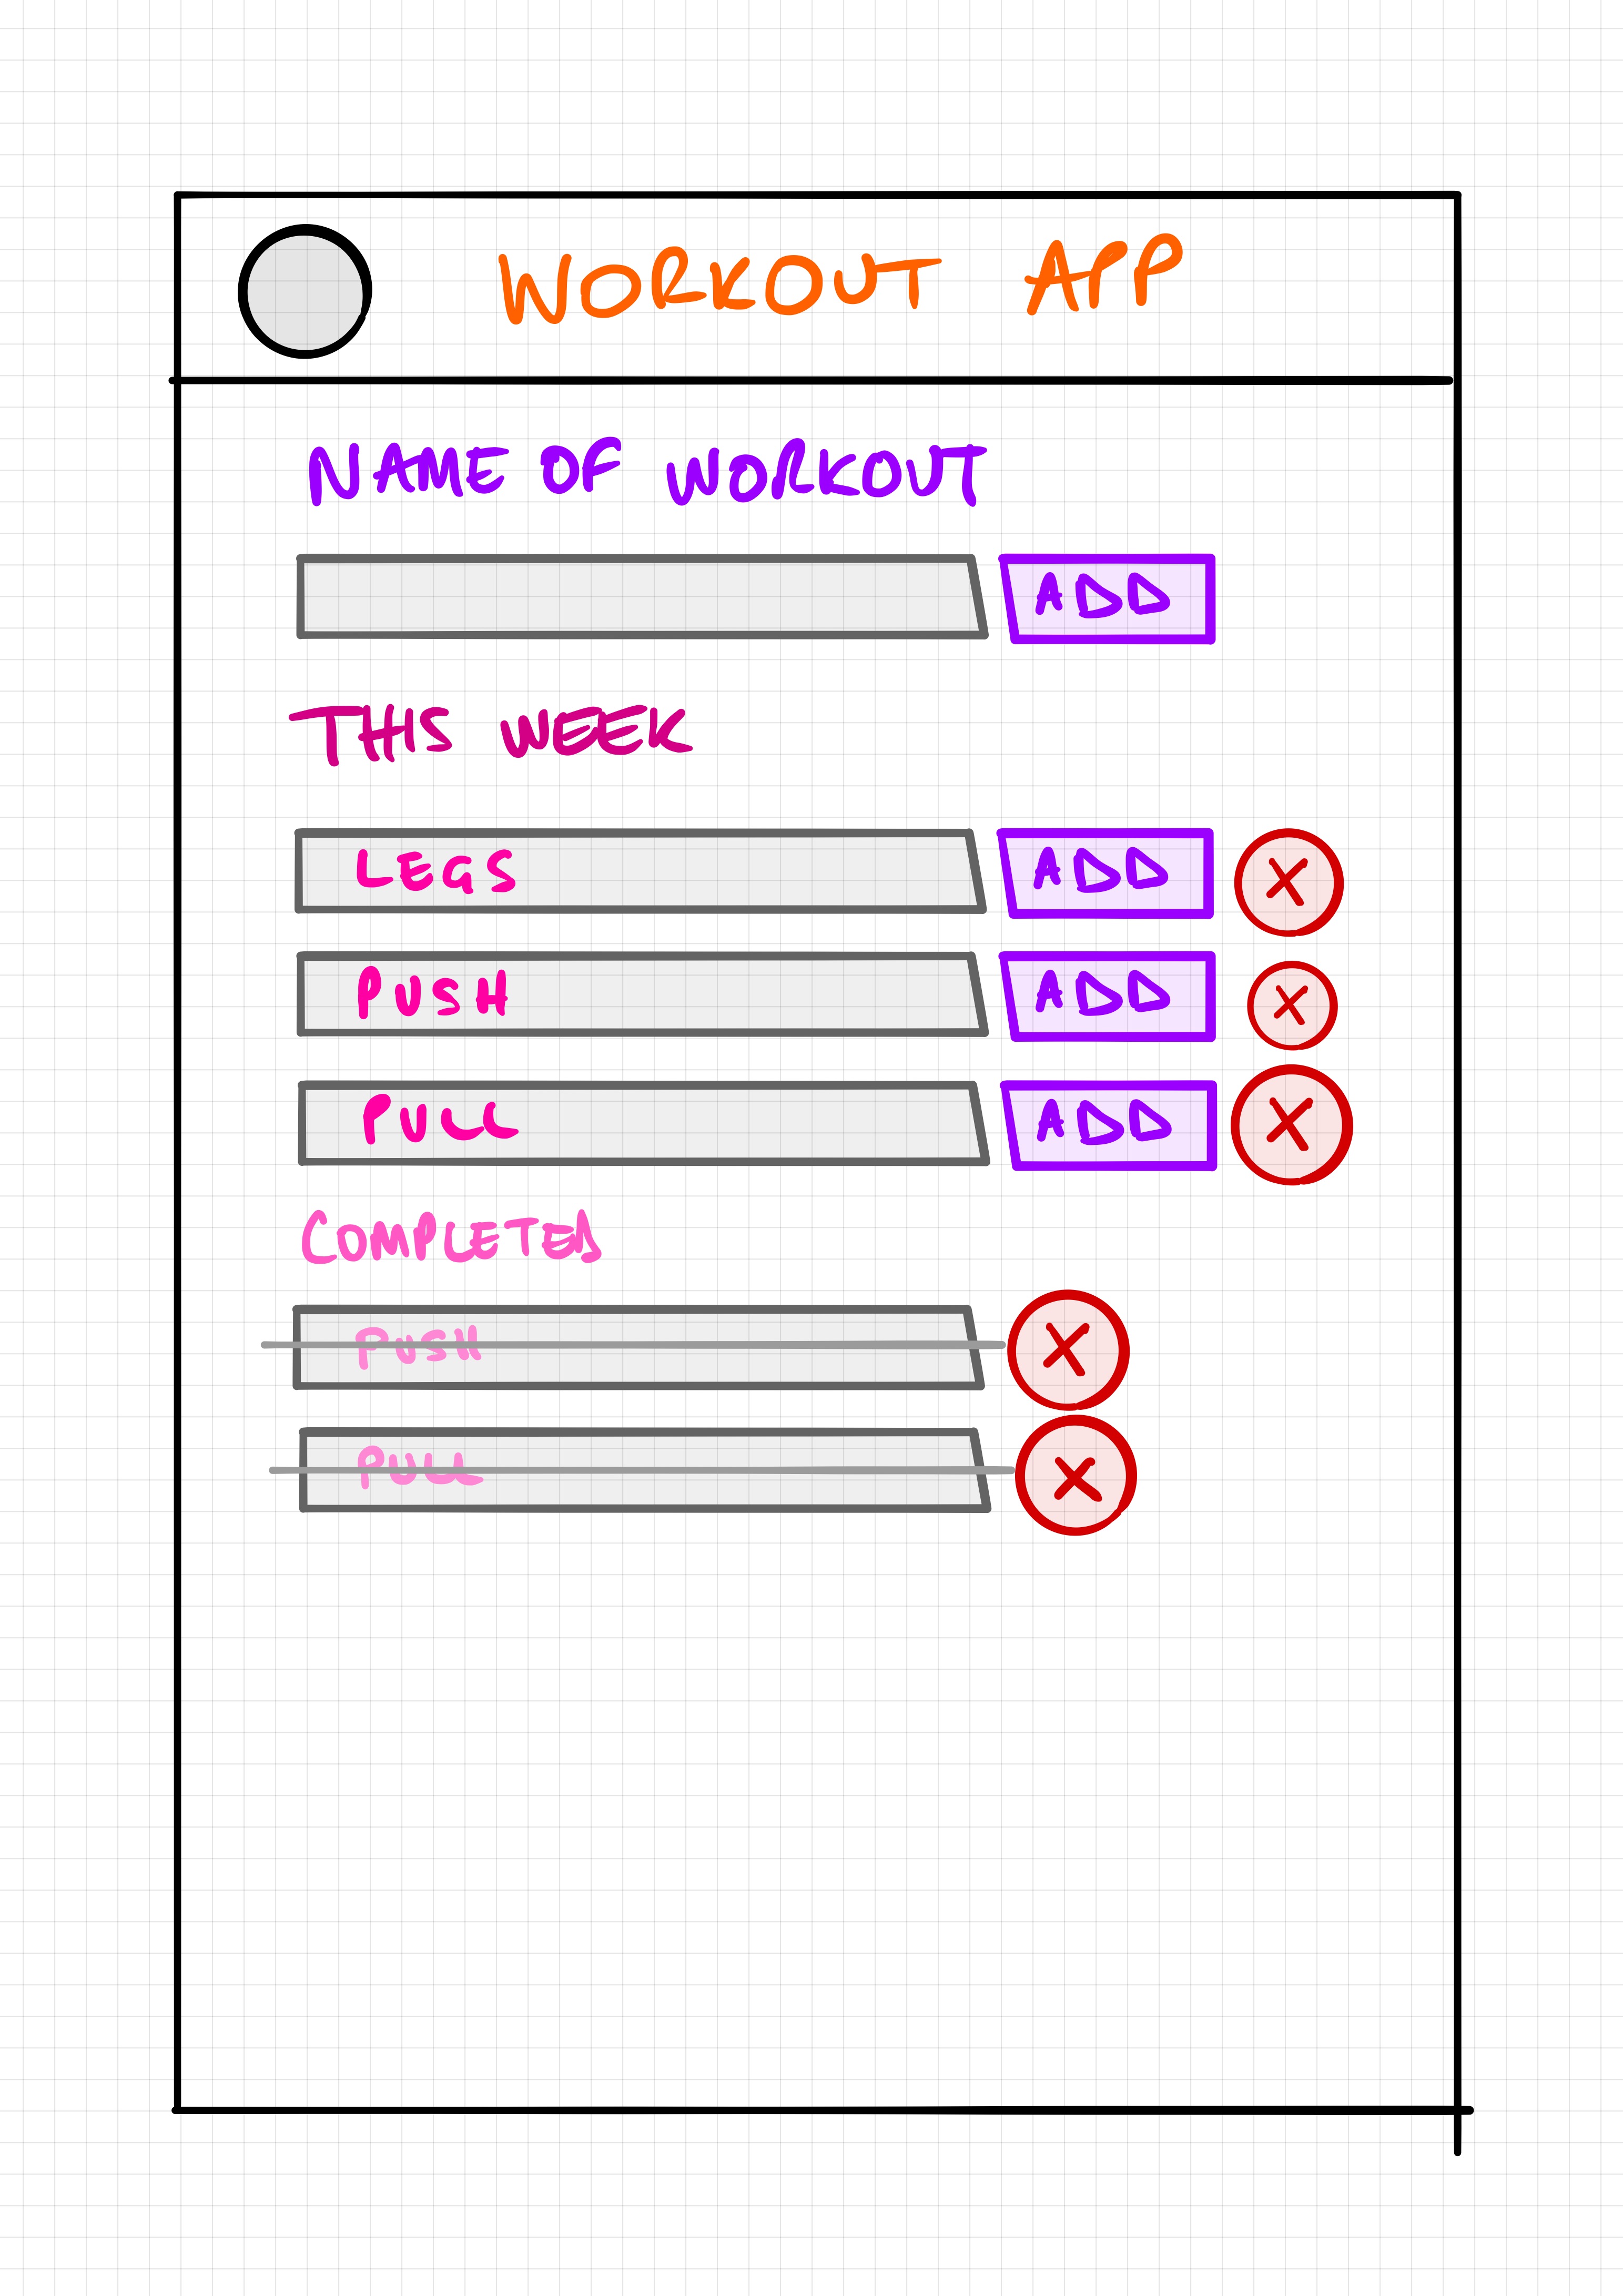 WORKOUT APP
NAME OF WORKOUT
ADD
THIS WEEK
LEGS ADD X
PUSH ADD X
PULL ADD X
COMPLETED
PUSH X
PULL X